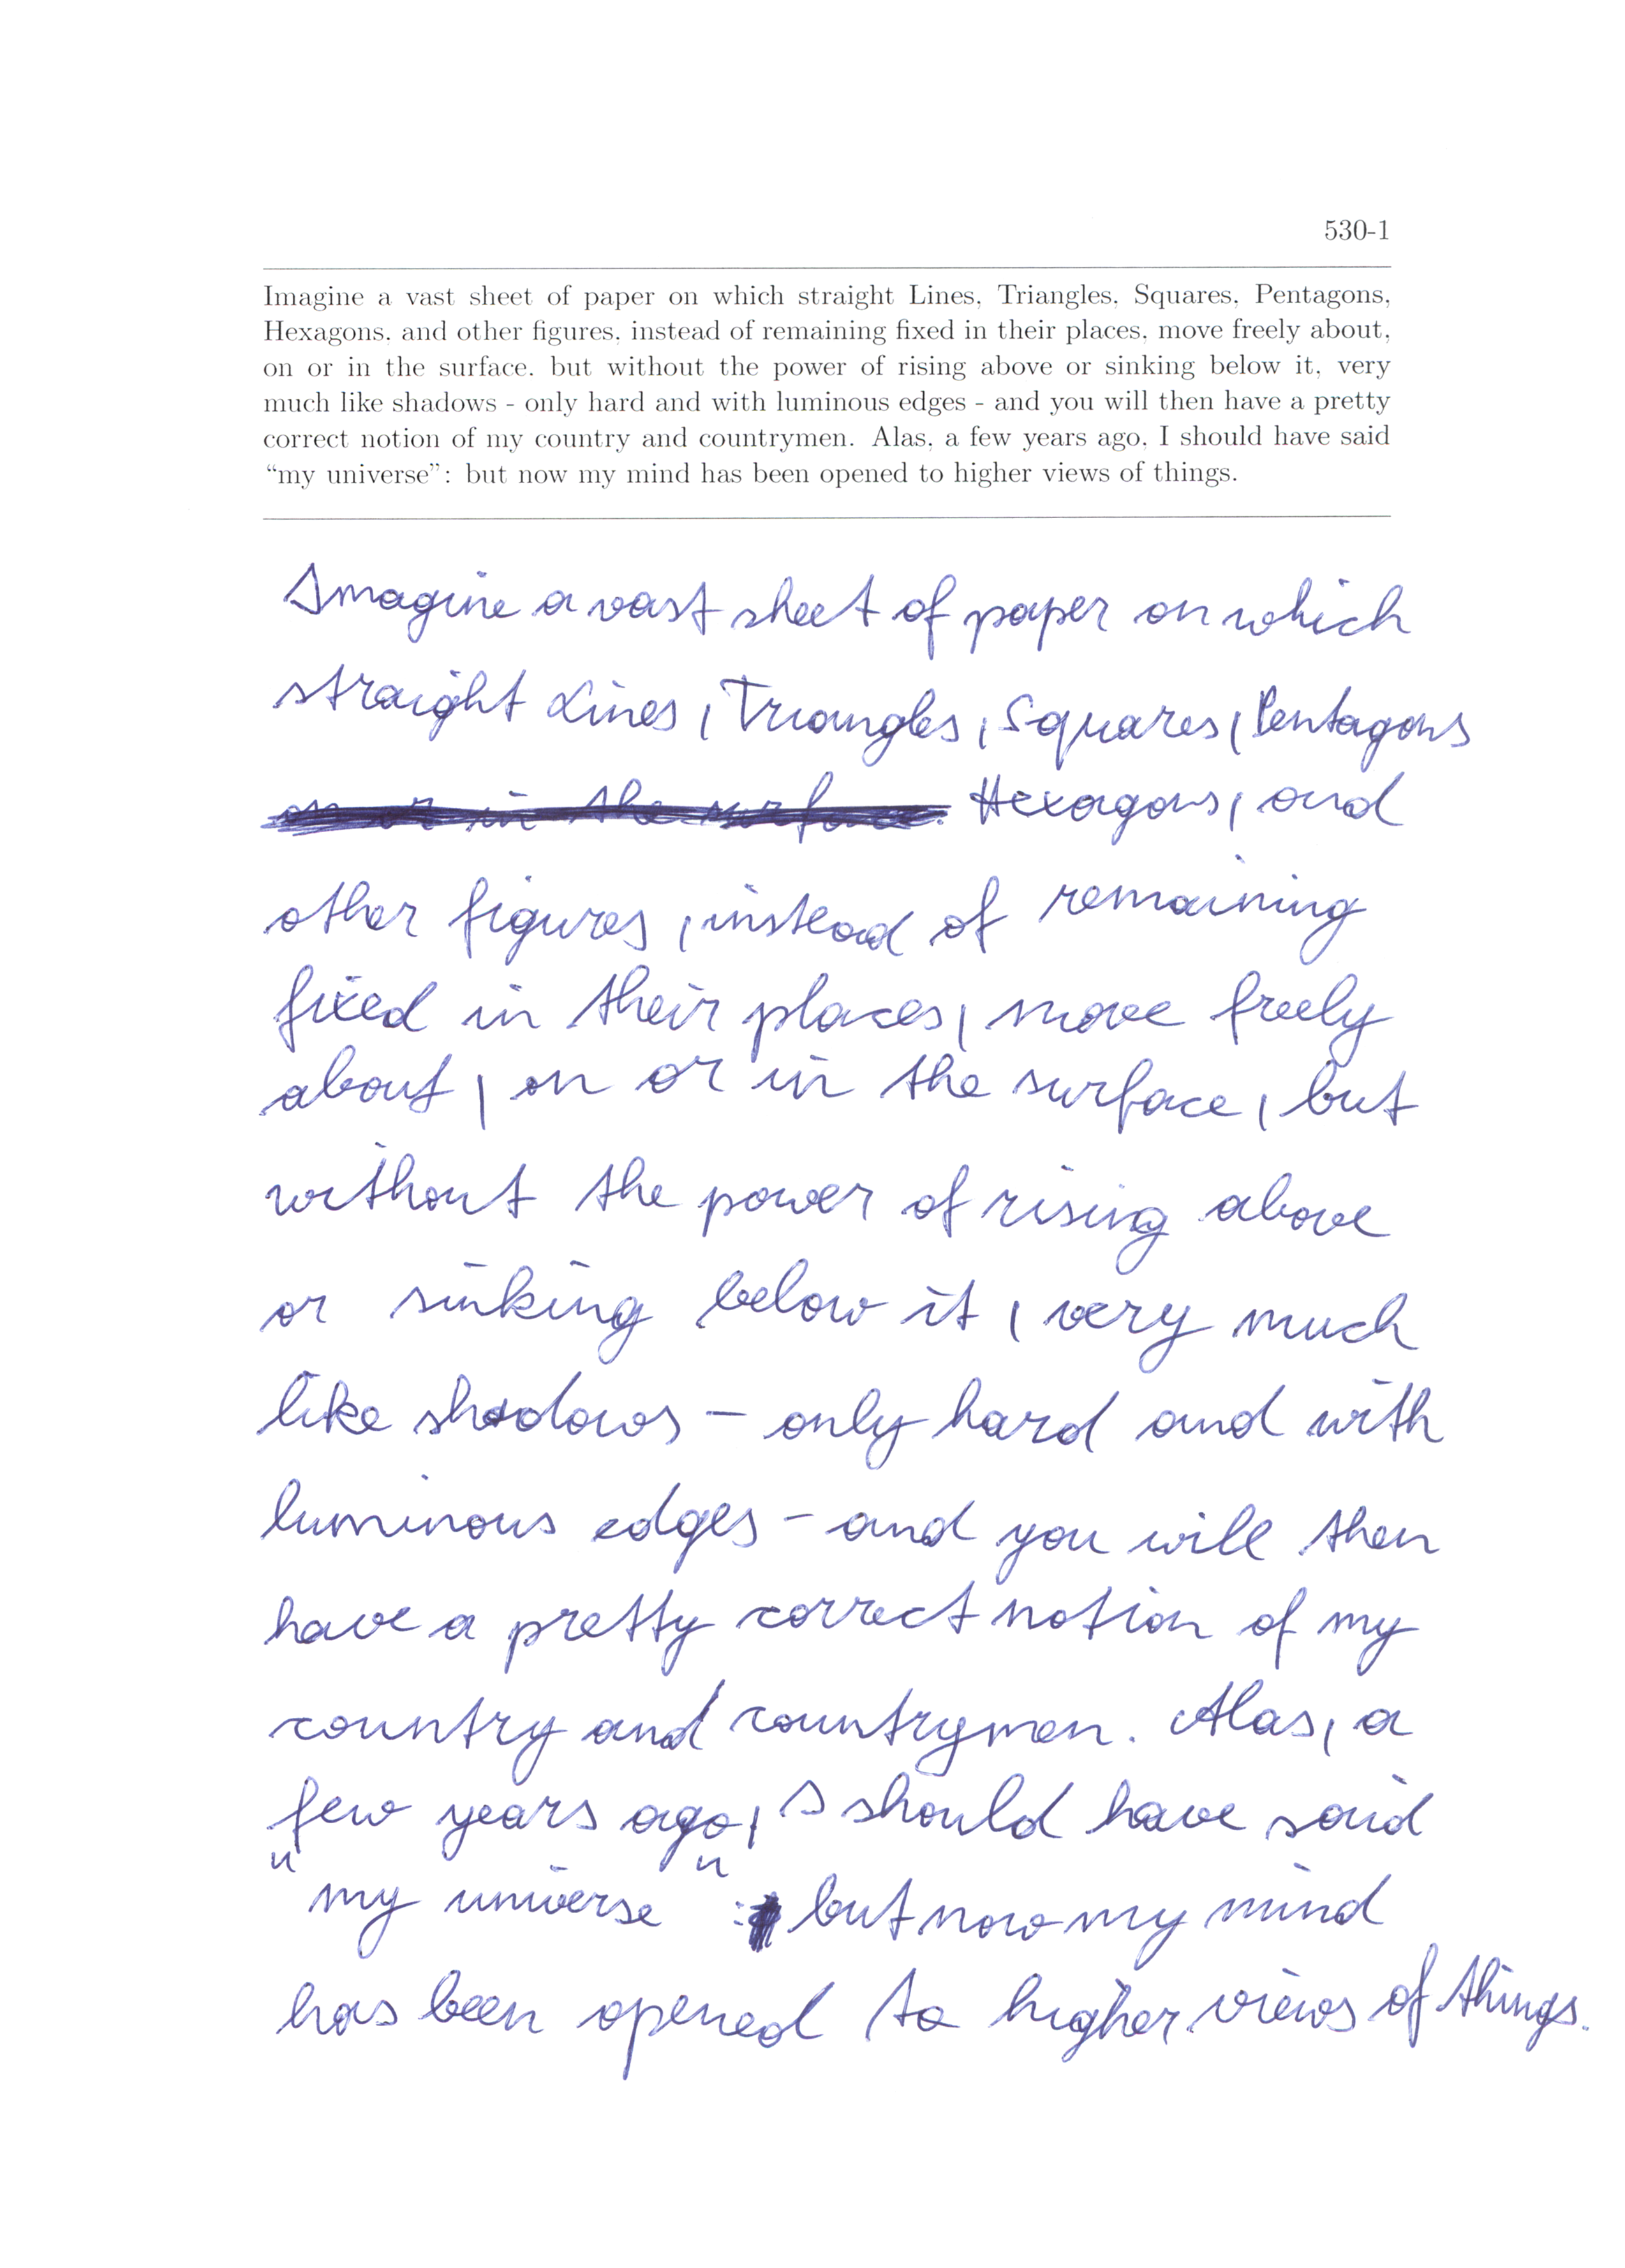 530-1
Imagine a vast sheet of paper on which straight Lines, Triangles, Squares, Pentagons,
Hexagons, and other figures, instead of remaining fixed in their places, move freely about,
on or in the surface, but without the power of rising above or sinking below it, very
much like shadows - only hard and with luminous edges - and you will then have a pretty
correct notion of my country and countrymen. Alas, a few years ago, I should have said
“my universe”: but now my mind has been opened to higher views of things.
Imagine a vast sheet of paper on which
straight Lines, Triangles, Squares, Pentagons
on or in the surface. Hexagons, and
other figures, instead of remaining
fixed in their places, move freely
about, on or in the surface, but
without the power of rising above
or sinking below it, very much
like shadows - only hard and with
luminous edges - and you will then
have a pretty correct notion of my
country and countrymen. Alas, a
few years ago, I should have said
"my universe": but now my mind
has been opened to higher views of things.